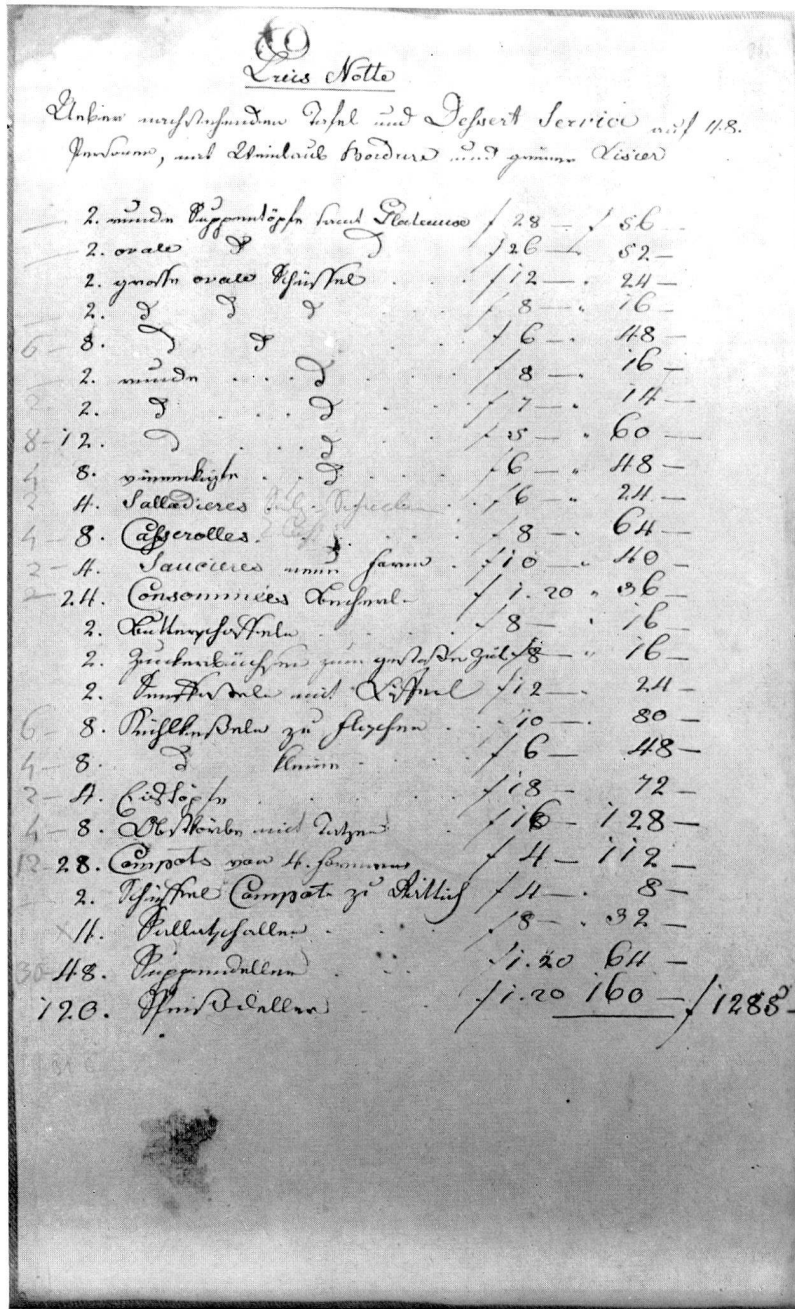 Preis Notte
Ueber nachstehenden Tafel und Dessert Service auf 48.
Personen, mit Weinlaub Bordure und grüner Lisier
2. runde Suppentöpfe samt Plateaux f 28 — f 56
2. ovale d d f 26 — 52 —
2. grosse ovale Schüssel f 12 — 24 —
2. d d d f 8 — " 16 —
6 — 8. d d f 6 — 48 —
2. runde d f 8 — 16 —
2. d d f 7 — 14 —
8 - 12. d d f 5 — " 60 —
4 8. vierekigte d f 6 — " 48 —
2 4. Salladieres f 6 — " 24 —
4 - 8. Casserolles f 8 — 64 —
2 - 4. Saucieres neue Form f 10 — 40 —
2 - 24. Consommées Becherl f 1.20 " 36 —
2. Butterschaffeln f 8 — " 16 —
2. Zuckerbüchsen zum f 8 — " 16 —
2. mit Löfferl f 12 — 24 —
6 - 8. Kühlkeßeln zu flaschen 10 — 80 —
4 - 8. d kleine f 6 — 48 —
2 - 4. Eistöpfe f 18 — 72 —
4 - 8. Obstkörbe mit Tatzen f 16 — 128 —
12 - 28. Compots von 4. Formen f 4 — 112 —
2. Schüssel Compot zu f 4 — 8 —
4. Sallatschallen f 8 — " 32 —
30 - 48. Suppendeller f 1.20 64 —
120. Speißdeller f 1.20 160 — f 1288 —